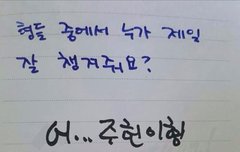 형들 중에서 누가 제일
잘 챙겨줘요?
어...주헌이형